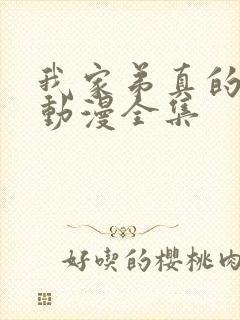 我家弟真的
動漫全集
好喫的櫻桃肉